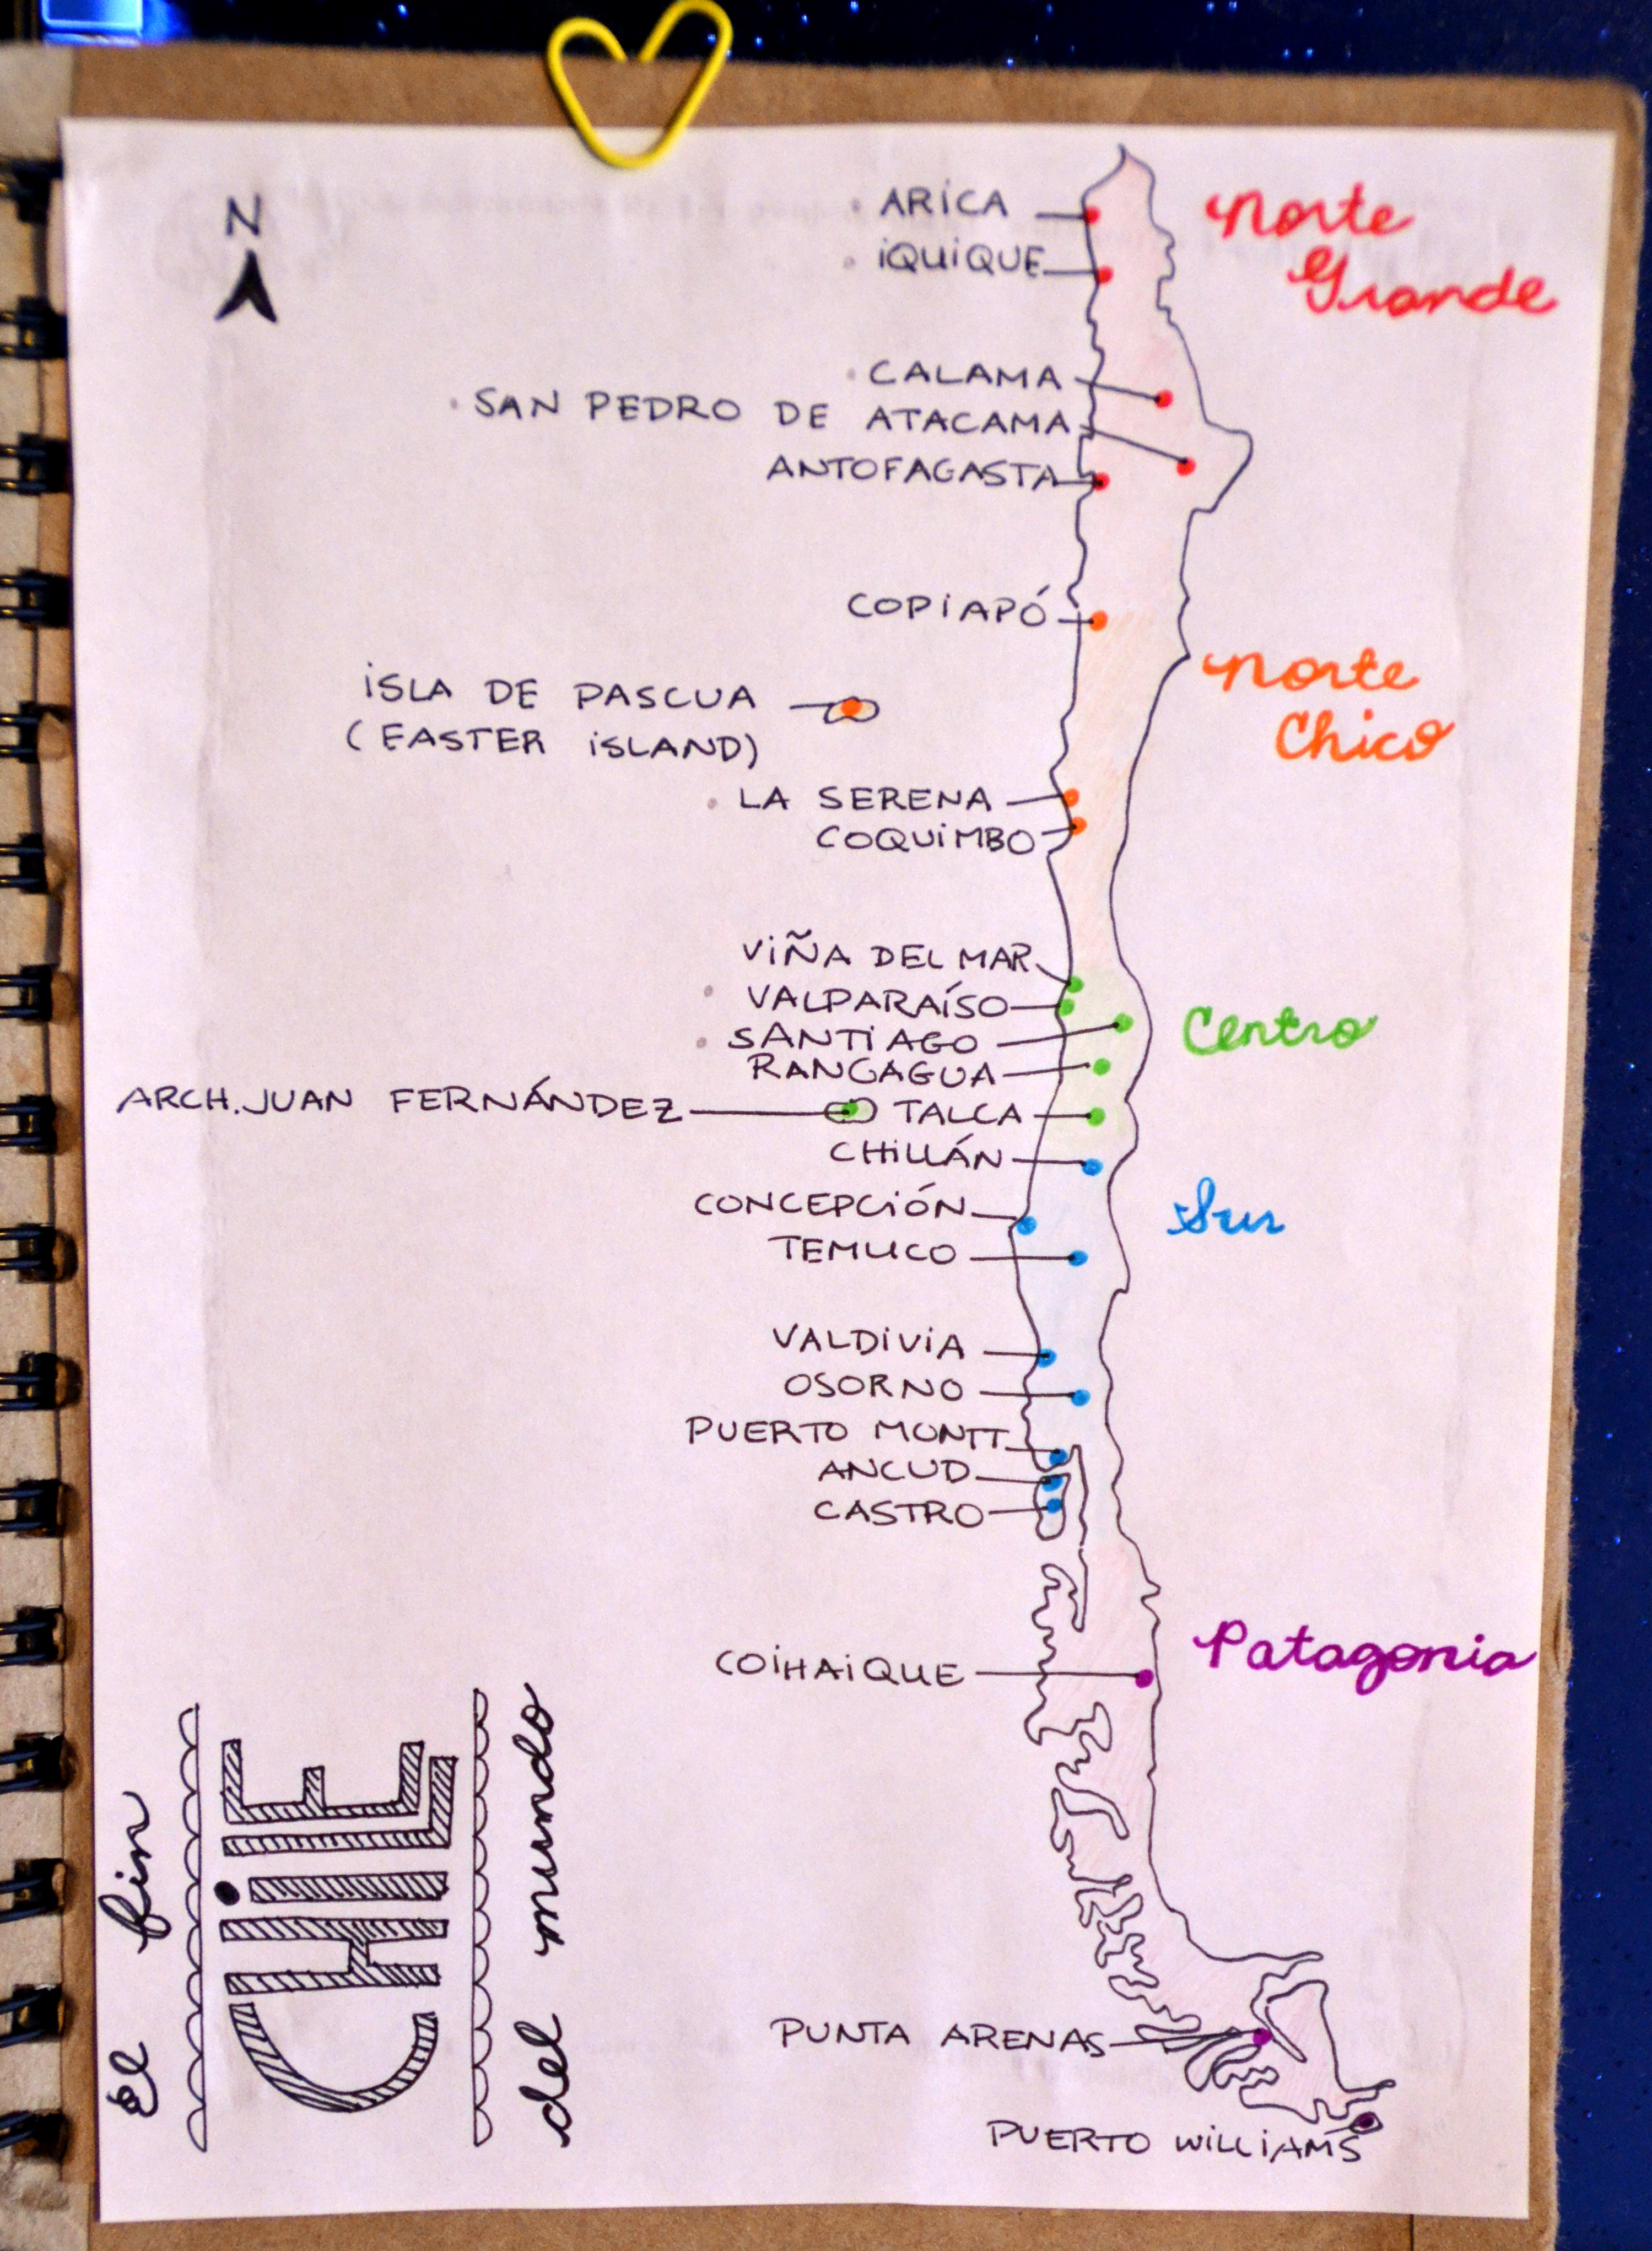 N
ARiCA
iQUiQUE
Norte
Grande
CALAMA
SAN PEDRO DE ATACAMA
ANTOFAGASTA
COPiAPÓ
iSLA DE PASCUA
(EASTER iSLAND)
Norte
Chico
LA SERENA
COQUiMBO
ViÑA DEL MAR
VALPARAÍSO
SANTiAGO
RANCAGUA
Centro
ARCH. JUAN FERNÁNDEZ
TALCA
CHiLLÁN
CONCEPCiÓN
TEMUCO
Sur
VALDiViA
OSORNO
PUERTO MONTT
ANCUD
CASTRO
COiHAiQUE
Patagonia
El fin
CHiLE
del mundo
PUNTA ARENAS
PUERTO WiLLiAMS